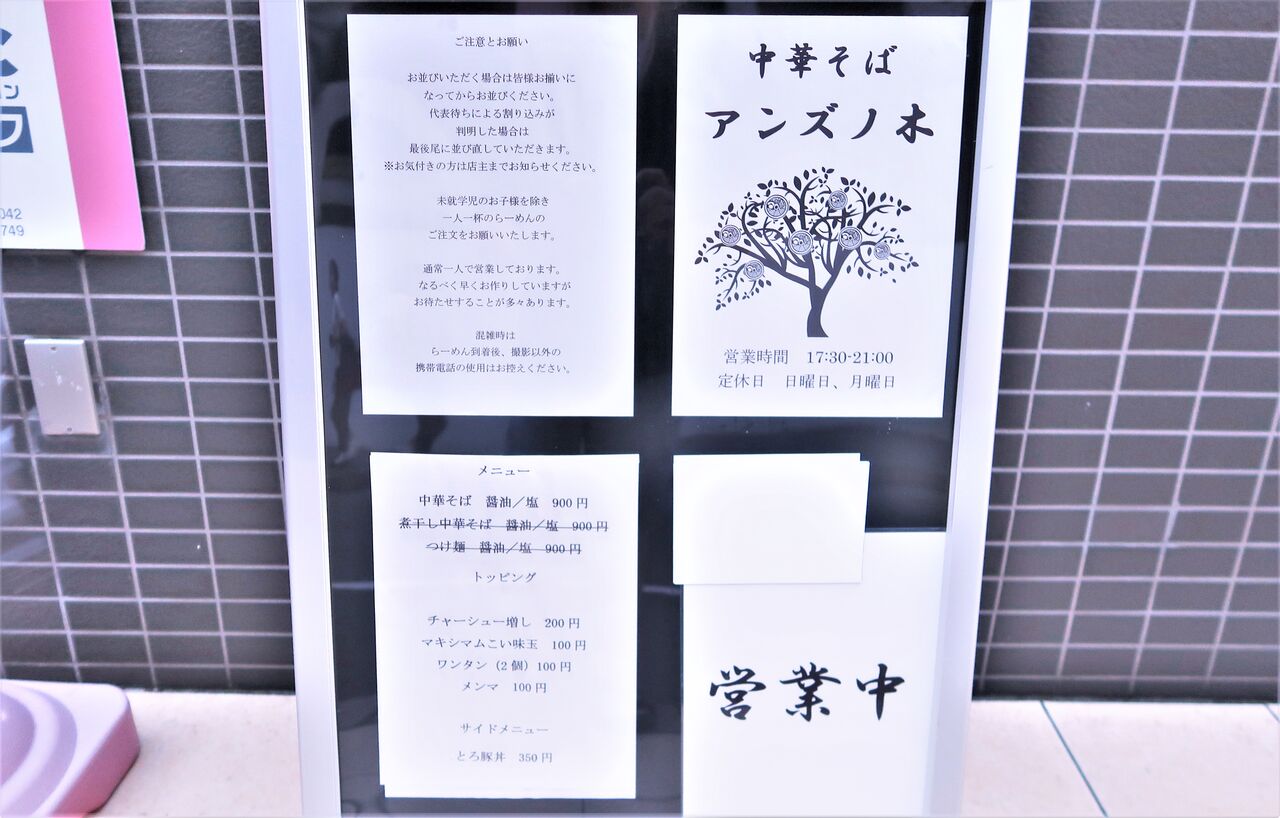 ご注意とお願い
お並びいただく場合は皆様お揃いに
なってからお並びください。
代表待ちによる割り込みが
判明した場合は
最後尾に並び直していただきます。
※お気付きの方は店主までお知らせください。
未就学児のお子様を除き
一人一杯のらーめんの
ご注文をお願いいたします。
通常一人で営業しております。
なるべく早くお作りしていますが
お待たせすることが多々あります。
混雑時は
らーめん到着後、撮影以外の
携帯電話の使用はお控えください。
中華そば
アンズノ木
営業時間 17:30-21:00
定休日 日曜日、月曜日
メニュー
中華そば 醤油／塩 900円
煮干し中華そば 醤油／塩 900円
つけ麺 醤油／塩 900円
トッピング
チャーシュー増し 200円
マキシマムこい味玉 100円
ワンタン（2個）100円
メンマ 100円
サイドメニュー
とろ豚丼 350円
営業中
042
749